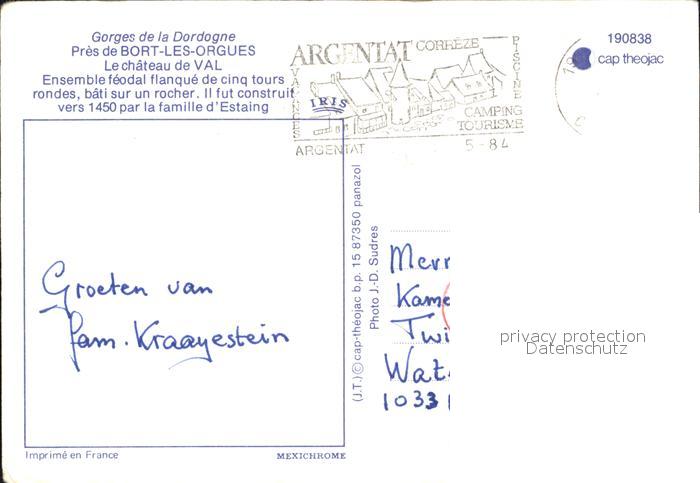 Gorges de la Dordogne
Près de BORT-LES-ORGUES
Le château de VAL
Ensemble féodal flanqué de cinq tours
rondes, bâti sur un rocher. Il fut construit
vers 1450 par la famille d'Estaing
IRIS
ARGENTAT CORRÈZE
VACANCES
PISCINE
CAMPING
TOURISME
ARGENTAT 5-84
190838
cap theojac
Groeten van
fam. Kraayestein
(J.T.) © cap-théojac b.p. 15 87350 panazol
Photo J.-D. Sudres
Merr
Kame
Twi
Wat
1033
privacy protection
Datenschutz
Imprimé en France
MEXICHROME